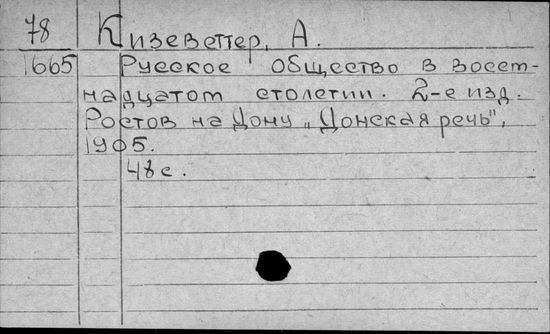 78
Кизеветтер, А.
1665
Русское общество в восем-
надцатом столетии. 2-е изд.
Ростов на Дону „Донская речь",
1905.
48 с.